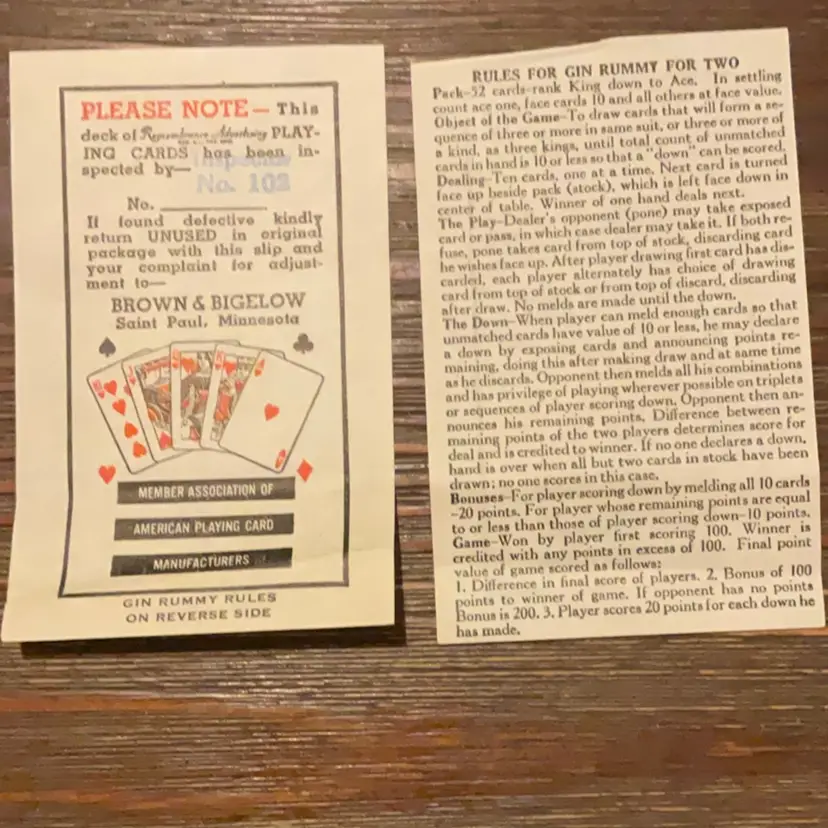 PLEASE NOTE — This
deck of Remembrance Advertising PLAY-
ING CARDS has been in-
spected by—
Inspector
No. 102
No.
If found defective kindly
return UNUSED in original
package with this slip and
your complaint for adjust-
ment to—
BROWN & BIGELOW
Saint Paul, Minnesota
MEMBER ASSOCIATION OF
AMERICAN PLAYING CARD
MANUFACTURERS
GIN RUMMY RULES
ON REVERSE SIDE
RULES FOR GIN RUMMY FOR TWO
Pack-52 cards-rank King down to Ace. In settling
count ace one, face cards 10 and all others at face value.
Object of the Game-To draw cards that will form a se-
quence of three or more in same suit, or three or more of
a kind, as three kings, until total count of unmatched
cards in hand is 10 or less so that a "down" can be scored.
Dealing-Ten cards, one at a time. Next card is turned
face up beside pack (stock), which is left face down in
center of table. Winner of one hand deals next.
The Play-Dealer's opponent (pone) may take exposed
card or pass, in which case dealer may take it. If both re-
fuse, pone takes card from top of stock, discarding card
he wishes face up. After player drawing first card has dis-
carded, each player alternately has choice of drawing
card from top of stock or from top of discard, discarding
after draw. No melds are made until the down.
The Down-When player can meld enough cards so that
unmatched cards have value of 10 or less, he may declare
a down by exposing cards and announcing points re-
maining, doing this after making draw and at same time
as he discards. Opponent then melds all his combinations
and has privilege of playing wherever possible on triplets
or sequences of player scoring down. Opponent then an-
nounces his remaining points. Difference between re-
maining points of the two players determines score for
deal and is credited to winner. If no one declares a down,
hand is over when all but two cards in stock have been
drawn; no one scores in this case.
Bonuses-For player scoring down by melding all 10 cards
-20 points. For player whose remaining points are equal
to or less than those of player scoring down-10 points.
Game-Won by player first scoring 100. Winner is
credited with any points in excess of 100. Final point
value of game scored as follows:
1. Difference in final score of players. 2. Bonus of 100
points to winner of game. If opponent has no points
Bonus is 200. 3. Player scores 20 points for each down he
has made.